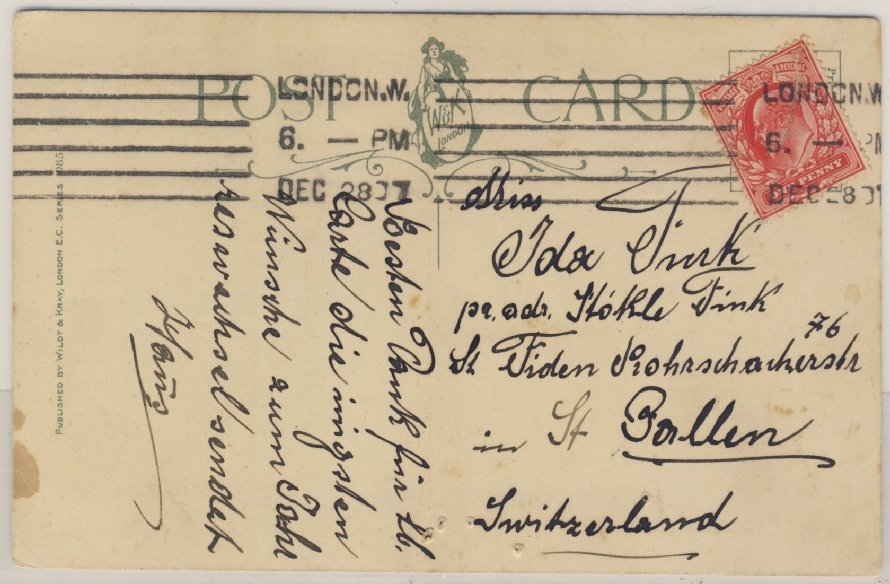 POST CARD
W&K
LONDON
LONDON.W.
6. — PM
DEC 28 07
LONDON.W
6. — PM
DEC 28 07
& REVENUE
ONE PENNY
PUBLISHED BY WILDT & KRAY, LONDON E.C. SERIES 1085
Besten Dank für lb.
Carte die innigsten
Wünsche zum Jahr
reswechsel sendet
Hans
Miss
Ida Fink
pr. adr. Stökle Fink
St Fiden Rohrschackerstr 76
in St Gallen
Switzerland